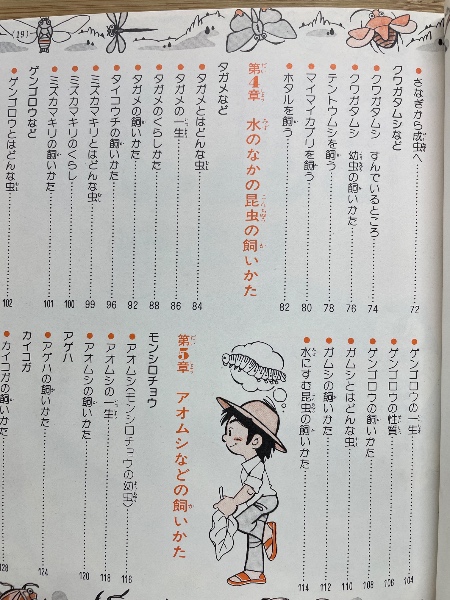 さなぎから成虫へ 72
クワガタムシなど
クワガタムシ すんでいるところ 74
クワガタムシ 幼虫の飼いかた 76
テントウムシを飼う 78
マイマイカブリを飼う 80
ホタルを飼う 82
第4章 水のなかの昆虫の飼いかた
タガメなど
タガメとはどんな虫 84
タガメの一生 86
タガメのくらしかた 88
タガメの飼いかた 92
タイコウチの飼いかた 96
ミズカマキリとはどんな虫 99
ミズカマキリのくらし 100
ミズカマキリの飼いかた 101
ゲンゴロウなど
ゲンゴロウとはどんな虫 102
ゲンゴロウの一生 104
ゲンゴロウの性質 106
ゲンゴロウの飼いかた 108
ガムシとはどんな虫 110
ガムシの飼いかた 112
水にすむ昆虫の飼いかた 114
第5章 アオムシなどの飼いかた
モンシロチョウ
アオムシ(モンシロチョウの幼虫) 118
アオムシの一生 118
アオムシの飼いかた 120
アゲハ
アゲハの飼いかた 124
カイコガ
カイコガの飼いかた 128
(19)